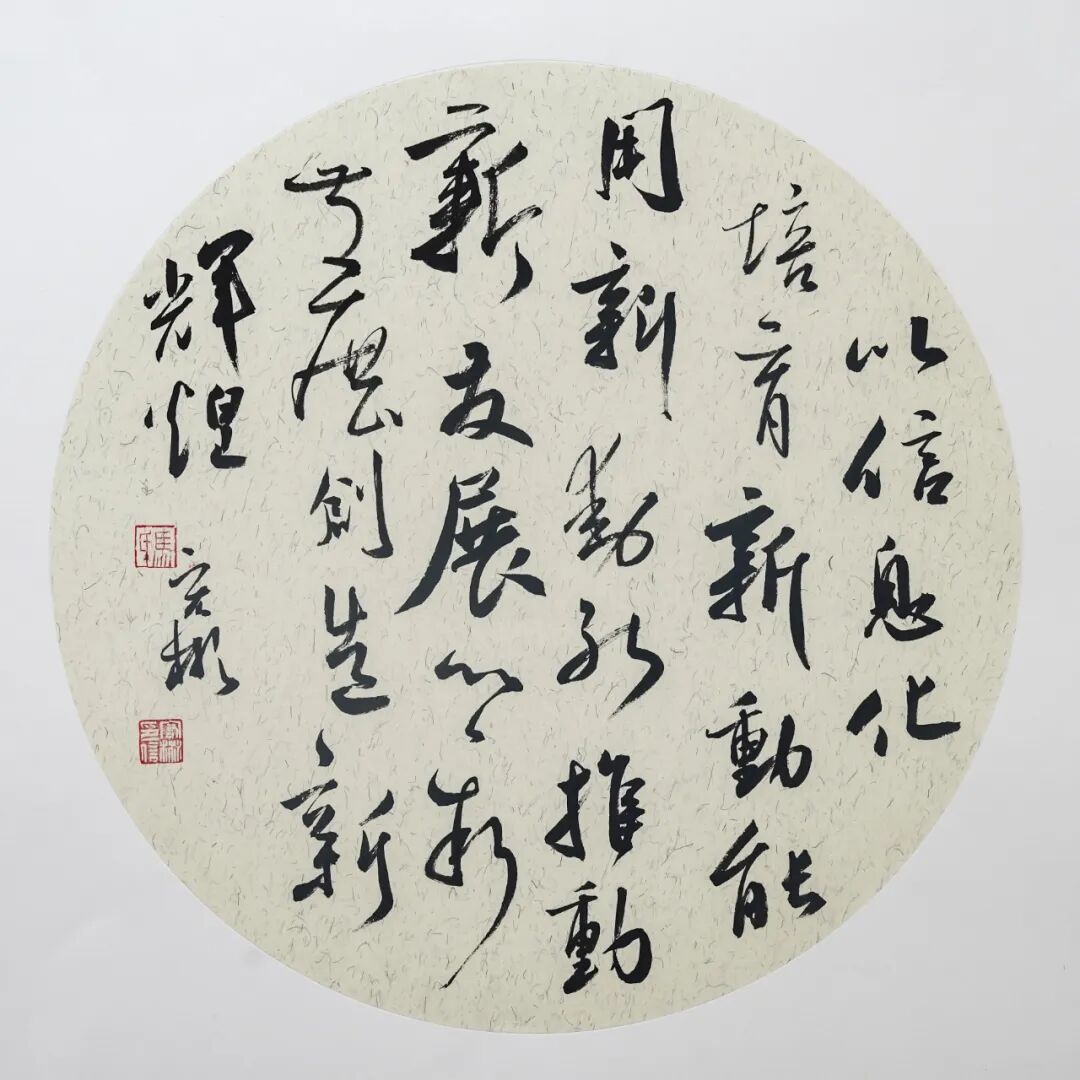 以信息化
培育新動能
用新動能推動
新发展以新
发展創造新
輝煌
馬氏